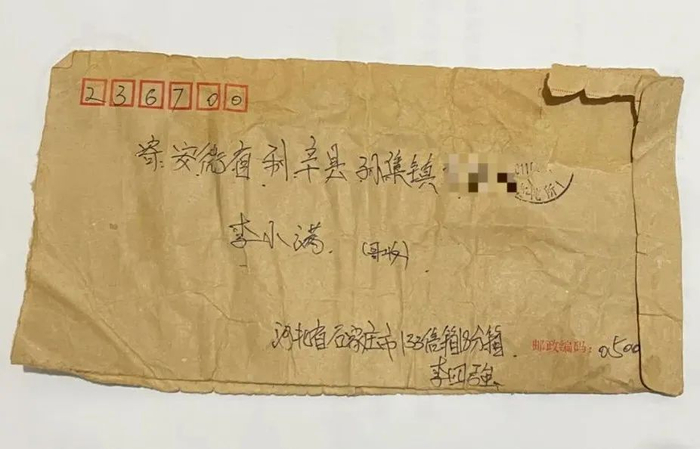 236700
安徽省利辛县孙集镇
李小满 (哥收)
河北省石家庄市133信箱13分箱
邮政编码:0500
李四强